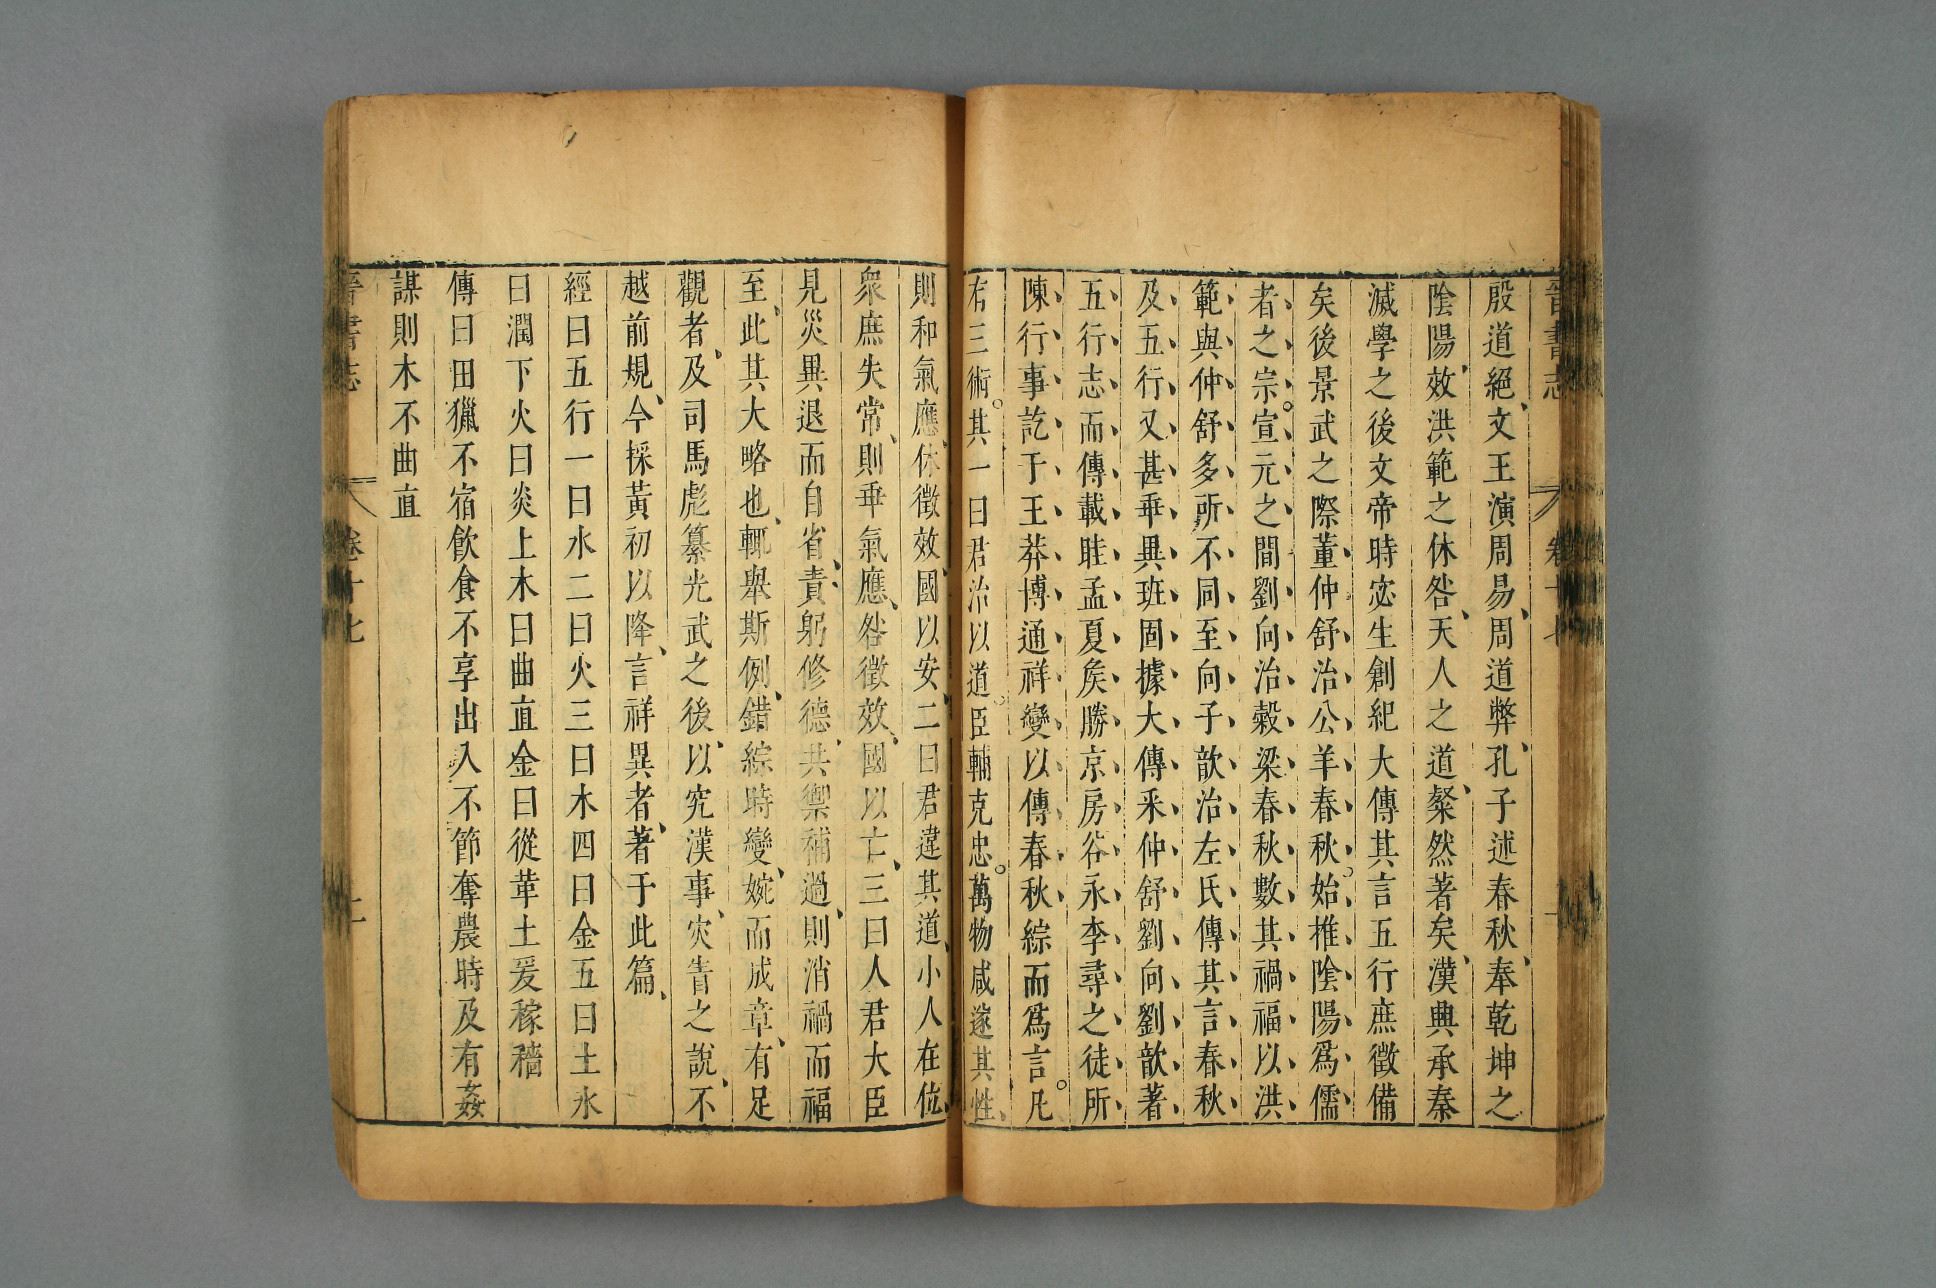 晉書志 卷十七
殷道絕文王演周易周道弊孔子述春秋奉乾坤之
陰陽效洪範之休咎天人之道粲然著矣漢興承秦
滅學之後文帝時宓生創紀大傳其言五行庶徵備
矣後景武之際董仲舒治公羊春秋始推陰陽爲儒
者之宗宣元之間劉向治穀梁春秋數其禍福以洪
範與仲舒多所不同至向子歆治左氏傳其言春秋
及五行又甚乖異班固據大傳采仲舒劉向劉歆著
五行志而傳載眭孟夏矦勝京房谷永李尋之徒所
陳行事訖于王莽博通祥變以傳春秋綜而爲言凡
有三術其一曰君治以道臣輔克忠萬物咸遂其性
則和氣應休徵效國以安二曰君違其道小人在位
衆庶失常則乖氣應咎徵效國以亡三曰人君大臣
見災異退而自省責躬修德共禦補過則消禍而福
至此其大略也輒舉斯例錯綜時變婉而成章有足
觀者及司馬彪纂光武之後以究漢事灾眚之說不
越前規今採黃初以降言祥異者著于此篇
經曰五行一曰水二曰火三曰木四曰金五曰土水
曰潤下火曰炎上木曰曲直金曰從革土爰稼穡
傳曰田獵不宿飲食不享出入不節奪農時及有姦
謀則木不曲直
晉書志 卷十七 二